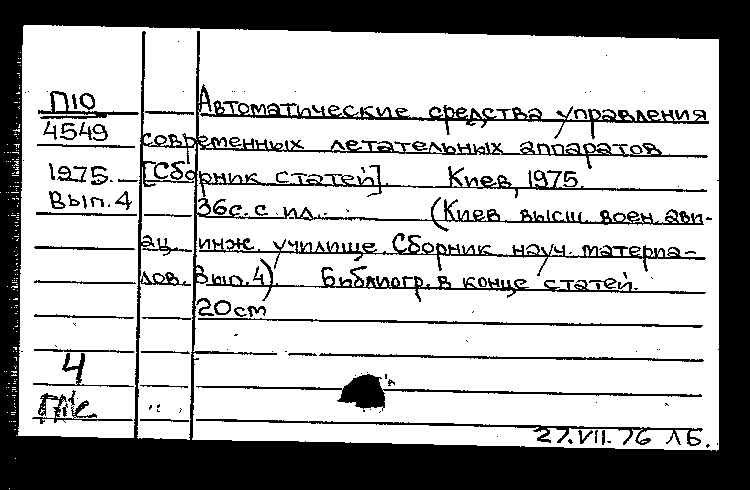 П10 Автоматические средства управления
4549 современных летательных аппаратов
1975. [Сборник статей]. Киев, 1975.
Вып. 4 36с. с ил. (Киев. высш. воен. ави-
ац. инж. училище. Сборник науч. материа-
лов. Вып. 4). Библиогр. в конце статей.
20см
4
27.VII.76 ЛБ.